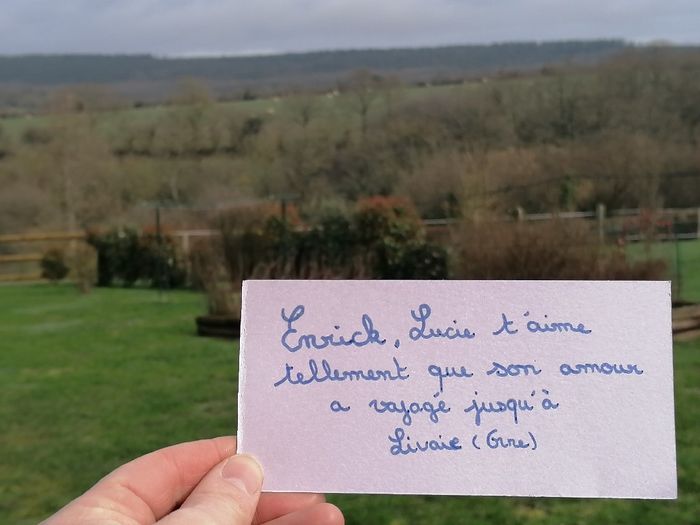 Enrick, Lucie t'aime
tellement que son amour
a vajagé jusqu'à
Livaie (Orne)